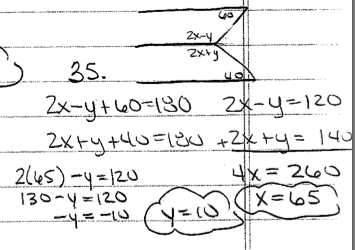 60
2x-y
2x+y
35.
40
2x-y+60=180 2x-y=120
2x+y+40=180 +2x+y= 140
2(65)-y=120 4x=260
130-y=120 x=65
-y=-10 y=10